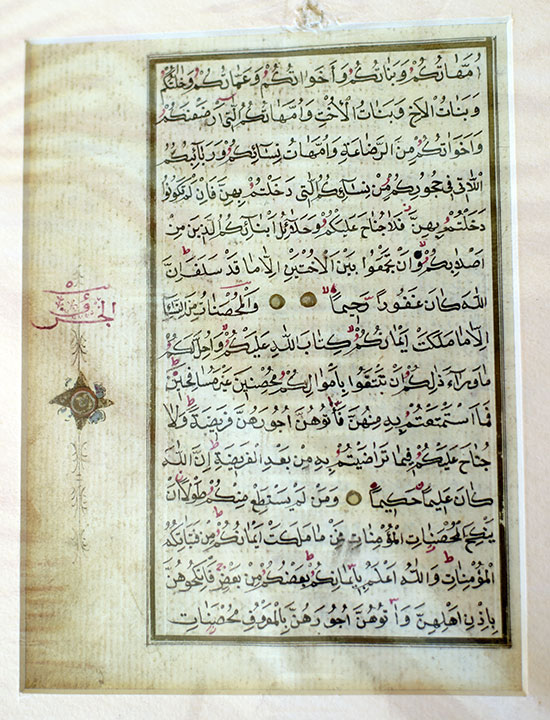 اُمَّهَاتُكُمْ وَبَنَاتُكُمْ وَاَخَوَاتُكُمْ وَعَمَّاتُكُمْ وَخَالَاتُكُمْ
وَبَنَاتُ الْاَخِ وَبَنَاتُ الْاُخْتِ وَاُمَّهَاتُكُمُ الّٰتِى اَرْضَعْنَكُمْ
وَاَخَوَاتُكُمْ مِنَ الرَّضَاعَةِ وَاُمَّهَاتُ نِسَائِكُمْ وَرَبَائِبُكُمُ
اللَّاتِى فِى حُجُورِكُمْ مِنْ نِسَائِكُمُ الّٰتِى دَخَلْتُمْ بِهِنَّ فَاِنْ لَمْ تَكُونُوا
دَخَلْتُمْ بِهِنَّ فَلَا جُنَاحَ عَلَيْكُمْ وَحَلَائِلُ اَبْنَائِكُمُ الَّذِينَ مِنْ
اَصْلَابِكُمْ وَاَنْ تَجْمَعُوا بَيْنَ الْاُخْتَيْنِ اِلَّا مَا قَدْ سَلَفَ اِنَّ
اللّٰهَ كَانَ غَفُورًا رَحِيمًا وَالْمُحْصَنَاتُ مِنَ النِّسَاءِ
الجزء
اِلَّا مَا مَلَكَتْ اَيْمَانُكُمْ كِتَابَ اللّٰهِ عَلَيْكُمْ وَاُحِلَّ لَكُمْ
مَا وَرَاءَ ذٰلِكُمْ اَنْ تَبْتَغُوا بِاَمْوَالِكُمْ مُحْصِنِينَ غَيْرَ مُسَافِحِينَ
فَمَا اسْتَمْتَعْتُمْ بِهِ مِنْهُنَّ فَاٰتُوهُنَّ اُجُورَهُنَّ فَرِيضَةً وَلَا
جُنَاحَ عَلَيْكُمْ فِيمَا تَرَاضَيْتُمْ بِهِ مِنْ بَعْدِ الْفَرِيضَةِ اِنَّ اللّٰهَ
كَانَ عَلِيمًا حَكِيمًا وَمَنْ لَمْ يَسْتَطِعْ مِنْكُمْ طَوْلًا اَنْ
يَنْكِحَ الْمُحْصَنَاتِ الْمُؤْمِنَاتِ فَمِنْ مَا مَلَكَتْ اَيْمَانُكُمْ مِنْ فَتَيَاتِكُمُ
الْمُؤْمِنَاتِ وَاللّٰهُ اَعْلَمُ بِاِيمَانِكُمْ بَعْضُكُمْ مِنْ بَعْضٍ فَانْكِحُوهُنَّ
بِاِذْنِ اَهْلِهِنَّ وَاٰتُوهُنَّ اُجُورَهُنَّ بِالْمَعْرُوفِ مُحْصَنَاتٍ